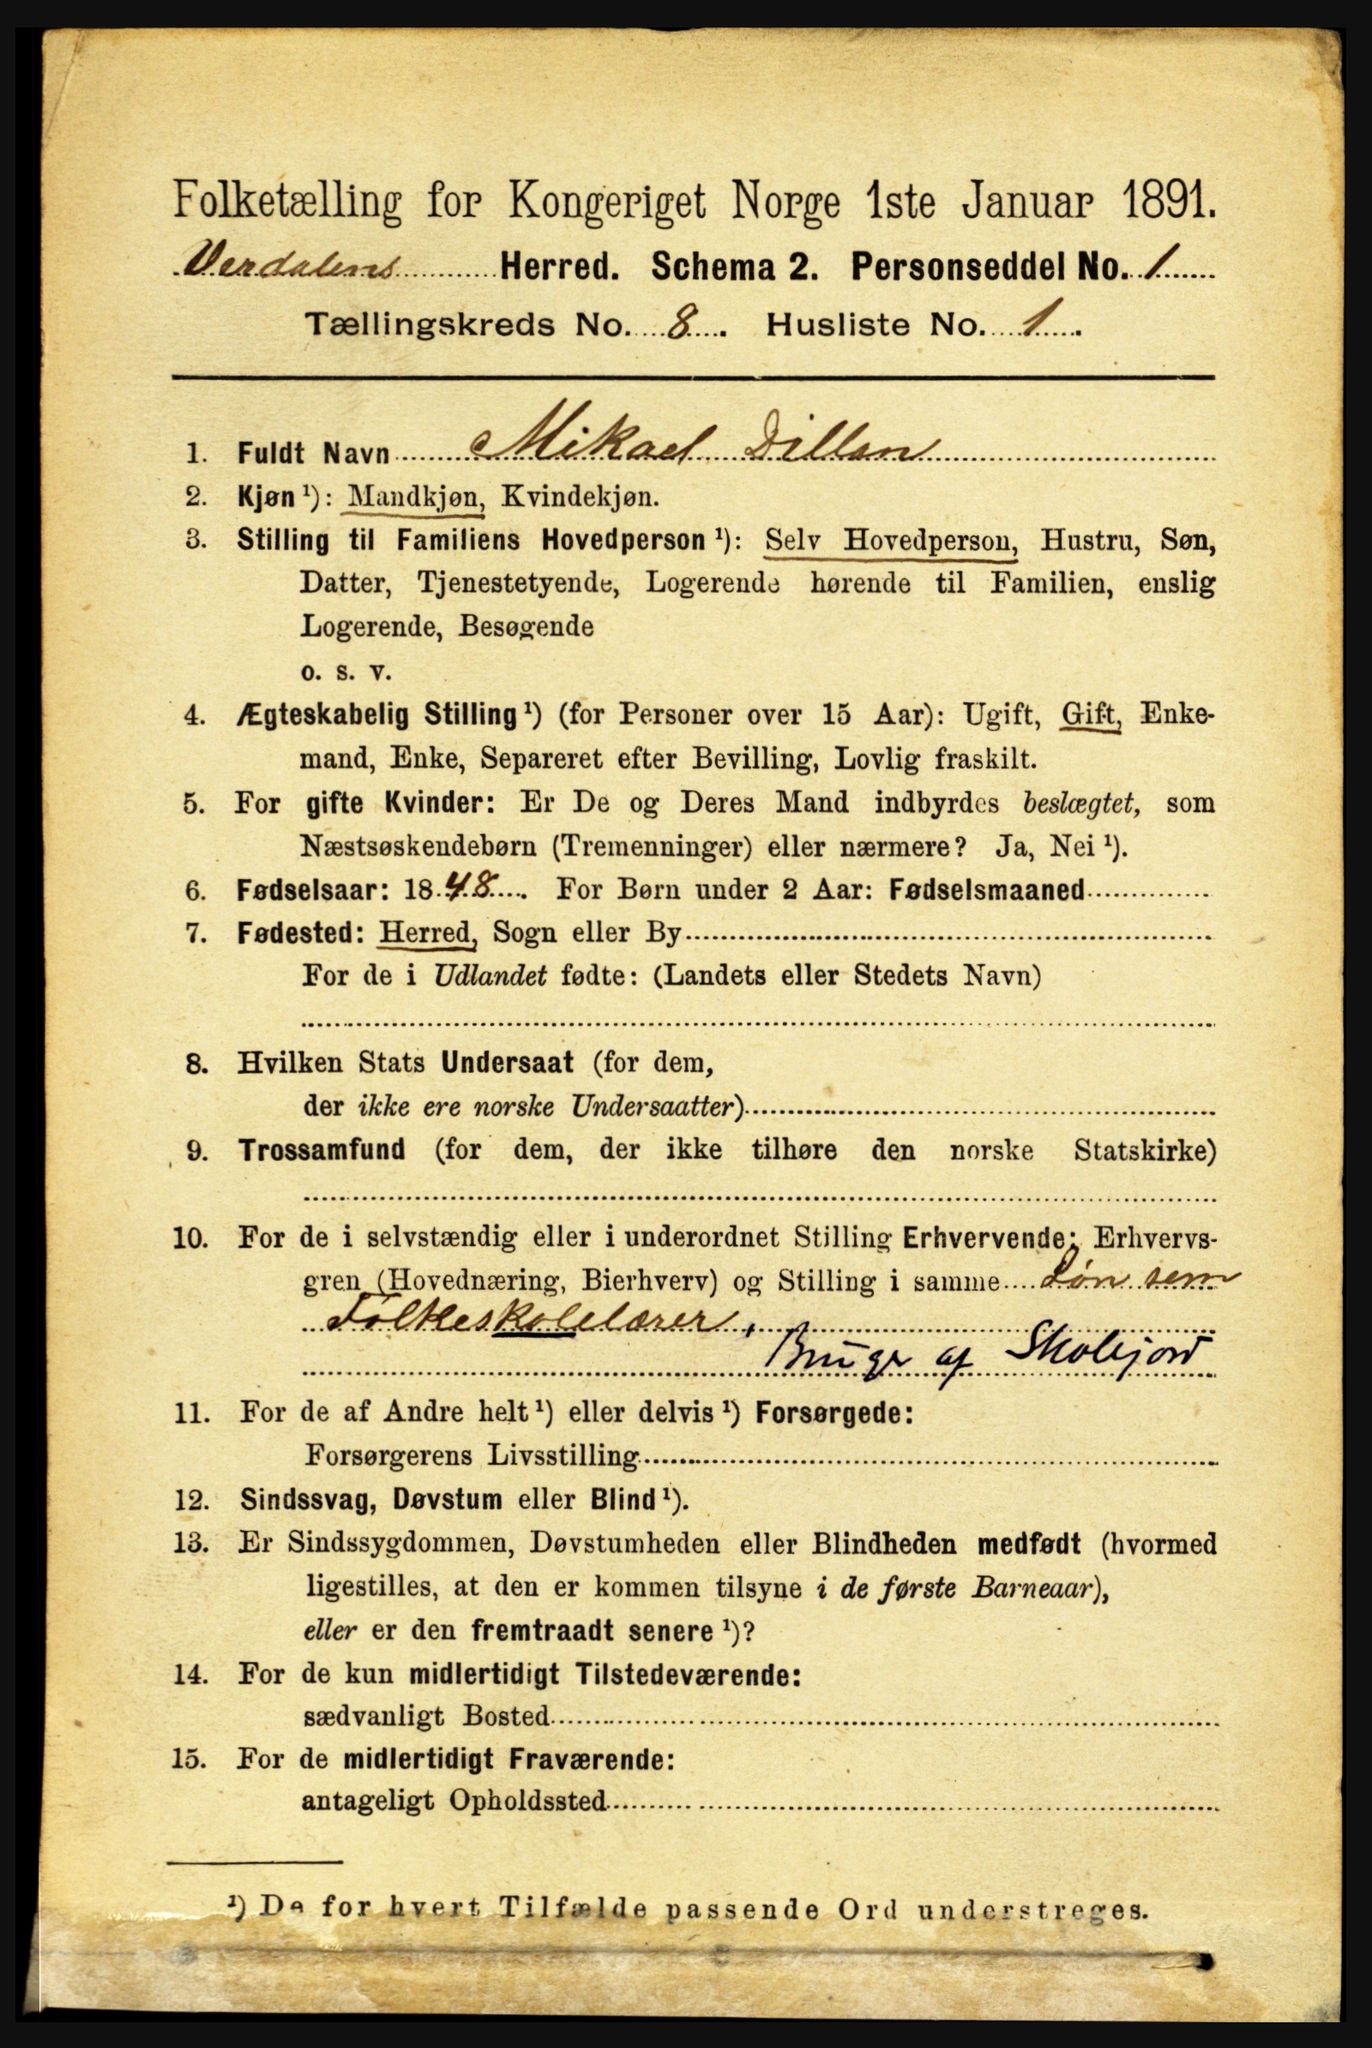 Folketælling for Kongeriget Norge 1ste Januar 1891.
Verdalens Herred. Schema 2. Personseddel No. 1
Tællingskreds No. 8. Husliste No. 1.
1. Fuldt Navn Mikael Dillan
2. Kjøn ¹): Mandkjøn, Kvindekjøn.
3. Stilling til Familiens Hovedperson ¹): Selv Hovedperson, Hustru, Søn,
Datter, Tjenestetyende, Logerende hørende til Familien, enslig
Logerende, Besøgende
o. s. v.
4. Ægteskabelig Stilling ¹) (for Personer over 15 Aar): Ugift, Gift, Enke-
mand, Enke, Separeret efter Bevilling, Lovlig fraskilt.
5. For gifte Kvinder: Er De og Deres Mand indbyrdes beslægtet, som
Næstsøskendebørn (Tremenninger) eller nærmere? Ja, Nei ¹).
6. Fødselsaar: 1848. For Børn under 2 Aar: Fødselsmaaned
7. Fødested: Herred, Sogn eller By
For de i Udlandet fødte: (Landets eller Stedets Navn)
8. Hvilken Stats Undersaat (for dem,
der ikke ere norske Undersaatter)
9. Trossamfund (for dem, der ikke tilhøre den norske Statskirke)
10. For de i selvstændig eller i underordnet Stilling Erhvervende: Erhvervs-
gren (Hovednæring, Bierhverv) og Stilling i samme Løn som
Folkeskolelærer,
Bruger af Skolejord
11. For de af Andre helt ¹) eller delvis ¹) Forsørgede:
Forsørgerens Livsstilling
12. Sindssvag, Døvstum eller Blind ¹).
13. Er Sindssygdommen, Døvstumheden eller Blindheden medfødt (hvormed
ligestilles, at den er kommen tilsyne i de første Barneaar),
eller er den fremtraadt senere ¹)?
14. For de kun midlertidigt Tilstedeværende:
sædvanligt Bosted
15. For de midlertidigt Fraværende:
antageligt Opholdssted
¹) De for hvert Tilfælde passende Ord understreges.